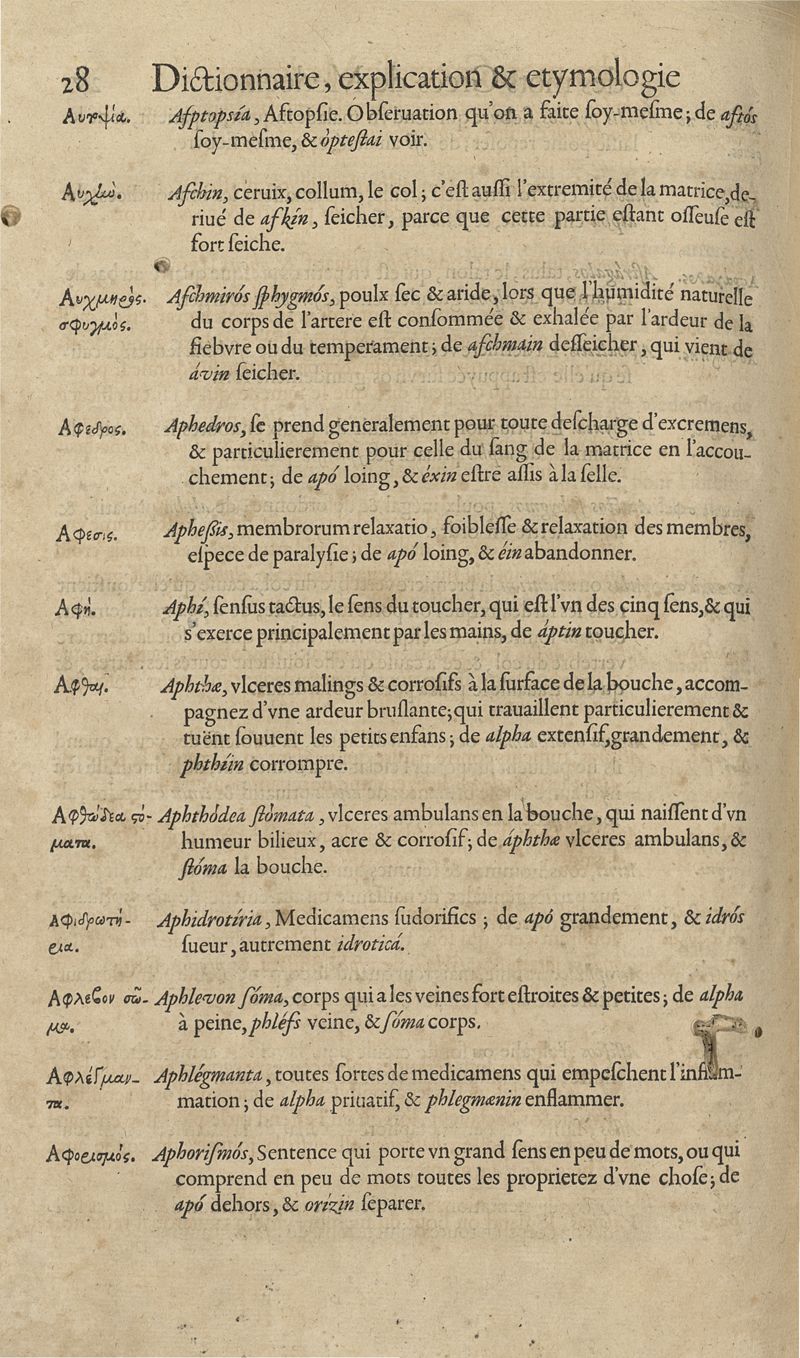 28 Dictionnaire, explication & etymologie
Αυτοψία. Afptopsía, Aftopsie. Obſeruation qu'on a faite ſoy-meſme; de aftós
ſoy-meſme, & òpteſtai voir.
Αυχὼ. Afchin, ceruix, collum, le col; c'eſt auſſi l'extremité de la matrice, de-
riué de afkín, ſeicher, parce que cette partie eſtant oſſeuſe eſt
fort ſeiche.
Αυχμηρὸς Afchmirós ſphygmós, poulx ſec & aride, lors que l'humidité naturelle
σφυγμὸς. du corps de l'artere eſt conſommée & exhalée par l'ardeur de la
fiebvre ou du temperament; de afchmain deſſeicher, qui vient de
ávin ſeicher.
Αφεδρος. Aphedros, ſe prend generalement pour toute deſcharge d'excremens,
& particulierement pour celle du ſang de la matrice en l'accou-
chement; de apó loing, & éxin eſtre aſſis à la ſelle.
Αφεσις. Apheſis, membrorum relaxatio, foibleſſe & relaxation des membres,
eſpece de paralyſie; de apó loing, & éin abandonner.
Αφή. Aphí, ſenſus tactus, le ſens du toucher, qui eſt l'vn des cinq ſens, & qui
s'exerce principalement par les mains, de áptin toucher.
Αφθαι. Aphthæ, vlceres malings & corroſifs à la ſurface de la bouche, accom-
pagnez d'vne ardeur bruſlante; qui trauaillent particulierement &
tuënt ſouuent les petits enfans; de alpha extenſif, grandement, &
phthíin corrompre.
Αφθώδεα ϛό- Aphthódea ſtómata, vlceres ambulans en la bouche, qui naiſſent d'vn
ματα. humeur bilieux, acre & corroſif; de áphthæ vlceres ambulans, &
ſtóma la bouche.
Αφιδρωτή- Aphidrotíria, Medicamens ſudorifics; de apó grandement, & idrós
ρια. ſueur, autrement idroticá.
Αφλεβον σῶ- Aphlevon ſóma, corps qui a les veines fort eſtroites & petites; de alpha
μα. à peine, phléfs veine, & ſóma corps.
Αφλέγμαν- Aphlégmanta, toutes ſortes de medicamens qui empeſchent l'inflam-
τα. mation; de alpha priuatif, & phlegmænin enflammer.
Αφορισμὸς. Aphoriſmós, Sentence qui porte vn grand ſens en peu de mots, ou qui
comprend en peu de mots toutes les proprietez d'vne choſe; de
apó dehors, & orízin ſeparer.